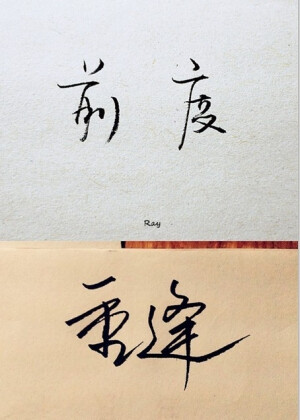 前度
Ray
重逢